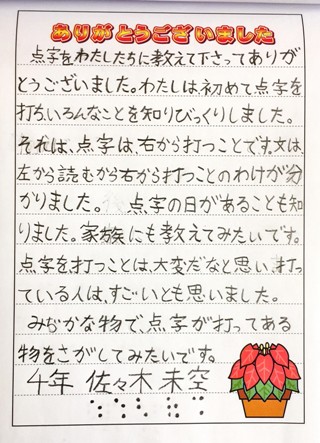 ありがとうございました
点字をわたしたちに教えて下さってありが
とうございました。わたしは、初めて点字を
打ち、いろんなことを知りびっくりしました。
それは、点字は、右から打つことです。文は、
左から読むから右から打つことのわけが分
かりました。 点字の日があることも知
りました。家族にも教えてみたいです。
点字を打つことは、大変だなと思い、打っ
ている人は、すごいとも思いました。
みぢかな物で、点字が打ってある
物をさがしてみたいです。
4年 佐々木 未空